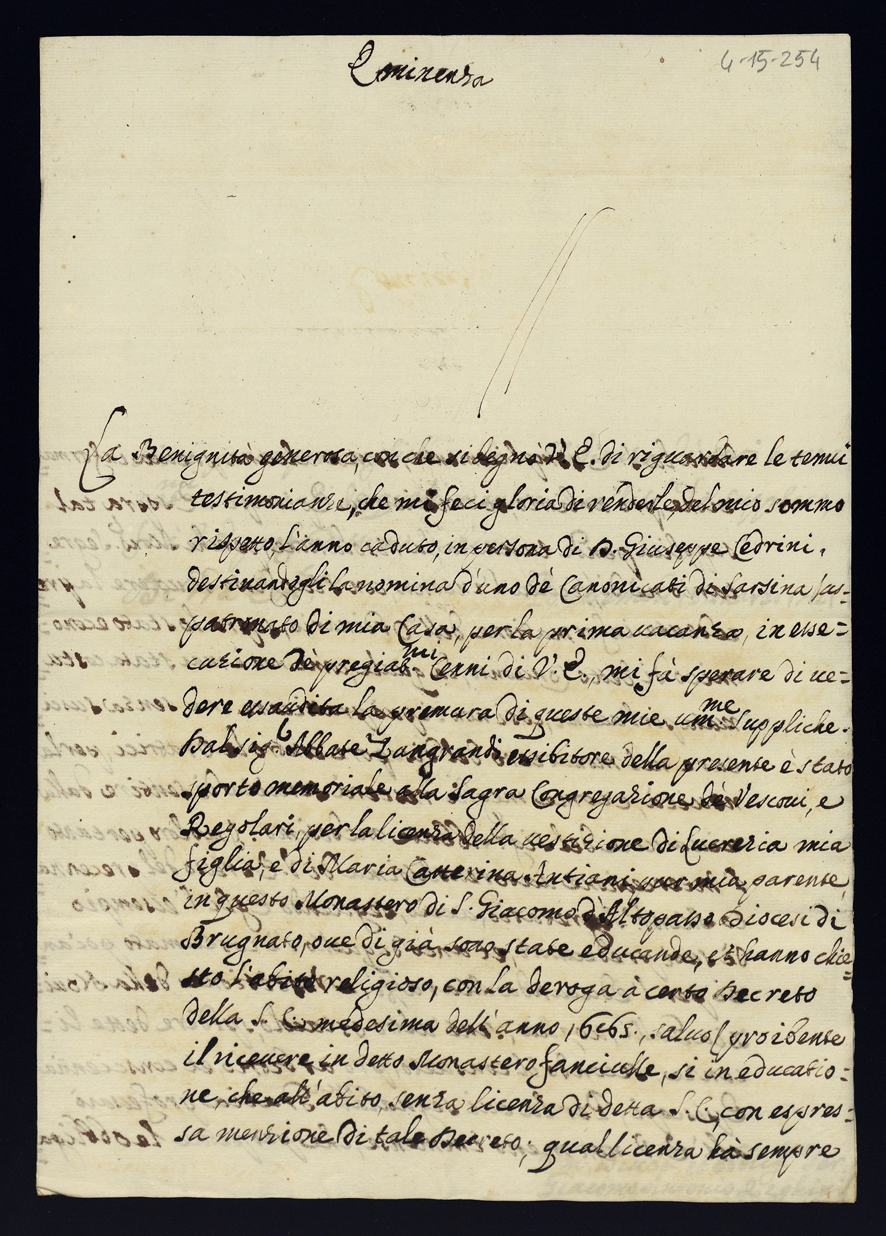 4-15-254
Eminenza
La Benignità generosa, con che si degnò V. E. di riguardare le tenui
testimonianze, che mi feci gloria di renderle, del mio sommo
rispetto, l'anno caduto, in persona di D. Giuseppe Cedrini,
destinandogli la nomina d'uno dè Canonicati di Sarsina, jus-
patronato di mia Casa, per la prima vacanza, in esse=
cuzione dè pregiat.mi Cenni di V. E., mi fà sperare di ve=
dere essaudita la premura di queste mie um.me Suppliche.
Dal sig.r Abbate Zangrandi essibitore della presente è stato
sporto memoriale alla Sagra Congregazione dè Vescovi, e
Regolari, per la licenza della vestizione di Lucrezia mia
figlia, e di Maria Catterina Antiani mia parente
in questo Monastero di S. Giacomo d'Altopasso Diocesi di
Brugnato, ove di già sono state educande, et hanno chie=
sto l'abito religioso, con la deroga à certo Decreto
della S. C. medesima dell'anno 1665., salvo / proibente
il ricevere in detto Monastero fanciulle, si in educatio=
ne, che all'abito, senza licenza di detta S. C., con espres=
sa menzione di tale Decreto; qual licenza hà sempre